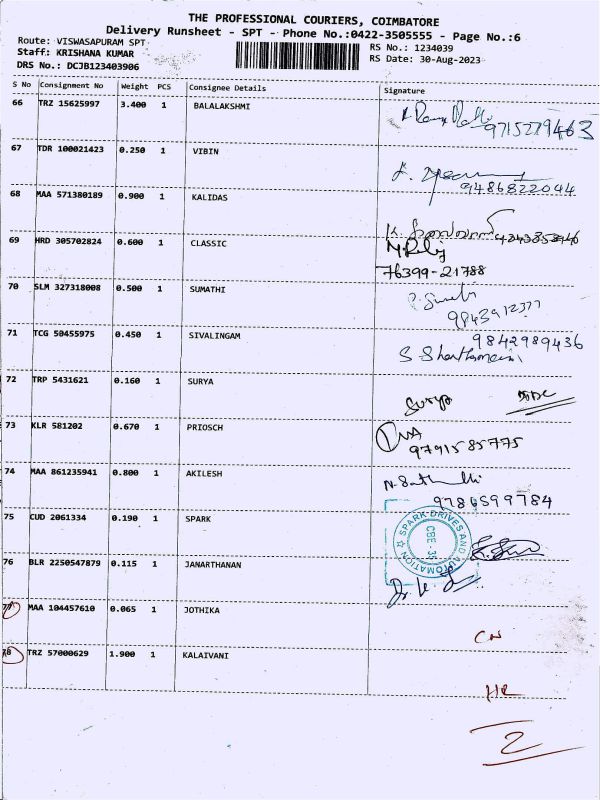 THE PROFESSIONAL COURIERS, COIMBATORE
Delivery Runsheet - SPT - Phone No.:0422-3505555 - Page No.:6
Route: VISWASAPURAM SPT
RS No.: 1234039
Staff: KRISHANA KUMAR
RS Date: 30-Aug-2023
DRS No.: DCJB123403906
S No Consignment No Weight PCS Consignee Details Signature
66 TRZ 15625997 3.400 1 BALALAKSHMI
9715279463
67 TDR 100021423 0.250 1 VIBIN
9486822044
68 MAA 571380189 0.900 1 KALIDAS
69 HRD 305702824 0.600 1 CLASSIC
76399-21788
70 SLM 327318008 0.500 1 SUMATHI
9843912377
71 TCG 50455975 0.450 1 SIVALINGAM
9842989436
72 TRP 5431621 0.160 1 SURYA
Surya
73 KLR 581202 0.670 1 PRIOSCH
9791585775
74 MAA 861235941 0.800 1 AKILESH
9786599784
75 CUD 2061334 0.190 1 SPARK
SPARK DRIVES AND AUTOMATION
CBE - 35
76 BLR 2250547879 0.115 1 JANARTHANAN
77 MAA 104457610 0.065 1 JOTHIKA
CN
78 TRZ 57000629 1.900 1 KALAIVANI
2